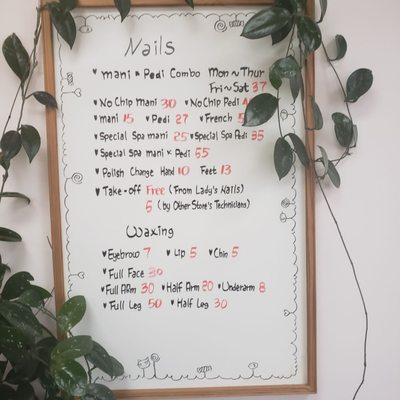 Nails
♥ mani & Pedi Combo Mon ~ Thur
Fri ~ Sat 37
♥ No Chip Mani 30 ♥ No Chip Pedi
♥ mani 15 ♥ Pedi 27 ♥ French 5
♥ Special Spa mani 25 ♥ Special Spa Pedi 35
♥ Special Spa mani & Pedi 55
♥ Polish Change Hand 10 Feet 13
♥ Take-off Free (From Lady's Nails)
5 (by Other Store's Technicians)
Waxing
♥ Eyebrow 7 ♥ Lip 5 ♥ Chin 5
♥ Full Face 30
♥ Full Arm 30 ♥ Half Arm 20 ♥ Underarm 8
♥ Full Leg 50 ♥ Half Leg 30